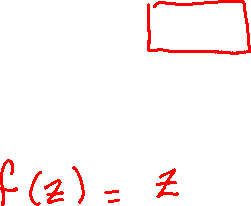 f(z) = z